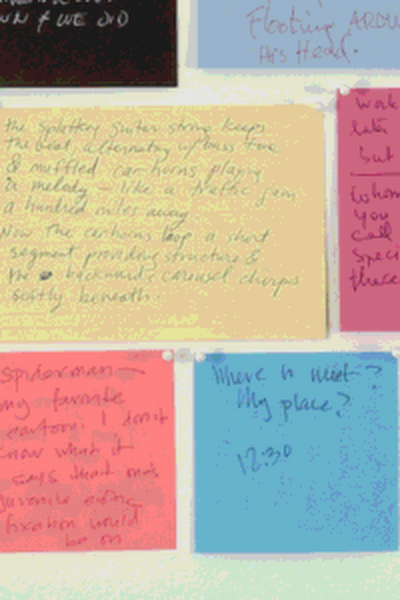 WN & WE DID
Floating AROU
His Head.
the spluttery guitar string keeps
the beat, alternating w/ bass tone
& muffled car horns, playing
a melody – like a traffic jam
a hundred miles away.
Now the carhorns loop a short
segment providing structure &
the backwards carousel chirps
softly beneath.
late
but
whom
you
call
speci
these
Spiderman –
my favorite
cartoon. I don't
know what it
says that one's
juvenile
fixation would
be on
Where to meet?
My place?
12:30